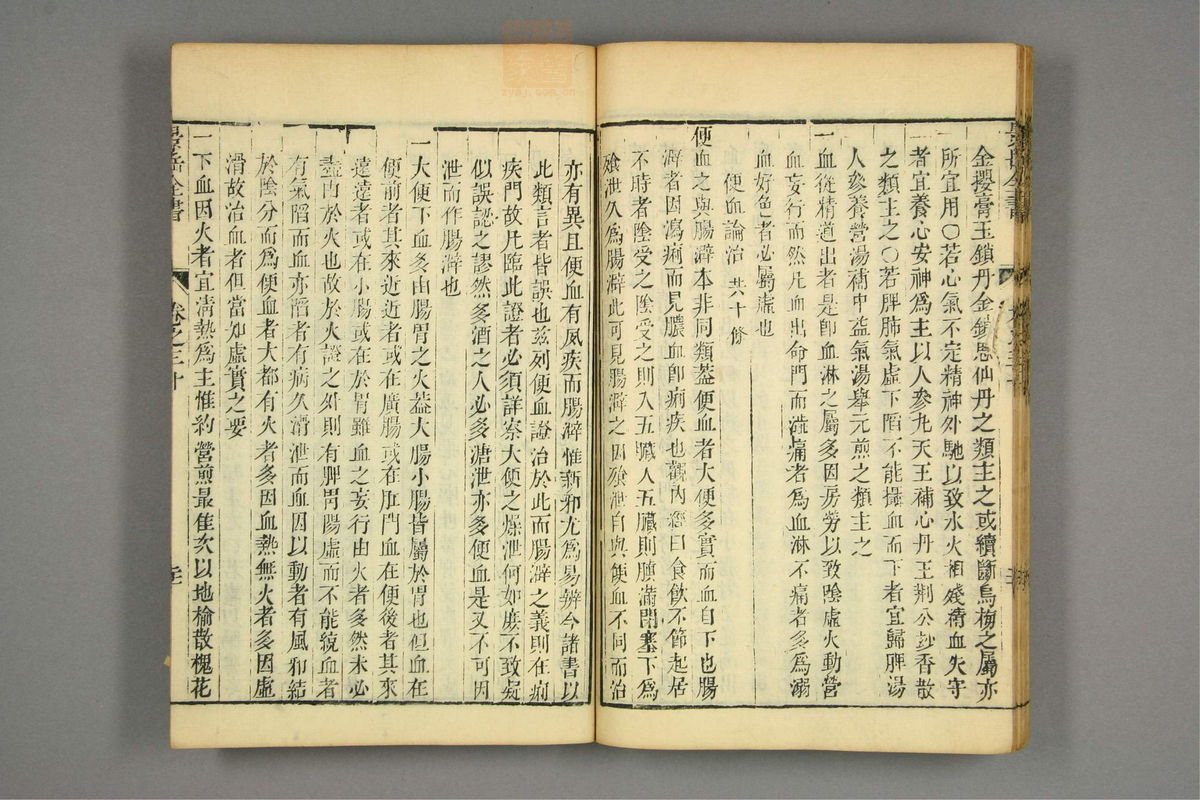 金櫻膏玉鎖丹金鎖思仙丹之類主之或續斷烏梅之屬亦
所宜用〇若心氣不定精神外馳以致水火相殘精血失守
者宜養心安神爲主以人參丸天王補心丹王荆公妙香散
之類主之〇若脾肺氣虛下陷不能攝血而下者宜歸脾湯
人參養營湯補中益氣湯舉元煎之類主之
一血從精道出者是卽血淋之屬多因房勞以致陰虛火動營
血妄行而然凡血出命門而澁痛者爲血淋不痛者多爲溺
血好色者必屬虛也
便血論治 共十條
便血之與腸澼本非同類蓋便血者大便多實而血自下也腸
澼者因瀉痢而見膿血卽痢疾也觀內經曰食飲不節起居
不時者陰受之陰受之則入五臟入五臟則䐜滿閉塞下爲
飱泄久爲腸澼此可見腸澼之因飱泄自與便血不同而治
亦有異且便血有夙疾而腸澼惟新邪尤爲易辨今諸書以
此類言者皆誤也玆列便血證治於此而腸澼之義則在痢
疾門故凡臨此證者必須詳察大便之燥泄何如庶不致疑
似誤認之謬然多酒之人必多溏泄亦多便血是又不可因
泄而作腸澼也
一大便下血多由腸胃之火蓋大腸小腸皆屬於胃也但血在
便前者其來近近者或在廣腸或在肛門血在便後者其來
遠遠者或在小腸或在於胃雖血之妄行由火者多然未必
盡由於火也故於火證之外則有脾胃陽虛而不能統血者
有氣陷而血亦陷者有病久滑泄而血因以動者有風邪結
於陰分而爲便血者大都有火者多因血熱無火者多因虛
滑故治血者但當知虛實之要
一下血因火者宜清熱爲主惟約營煎最佳次以地榆散槐花
景岳全書
卷之三十